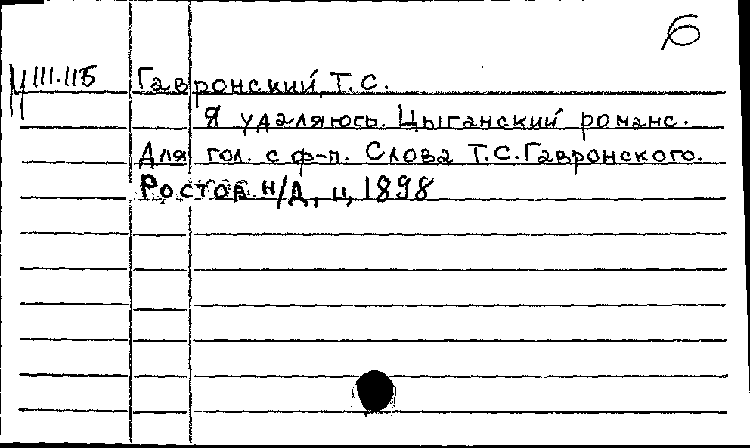 Б
М III.115 Гавронский, Т.С.
Я удаляюсь. Цыганский романс.
Для гол. с ф-п. Слова Т.С.Гавронского.
Ростов н/Д, ц, 1898